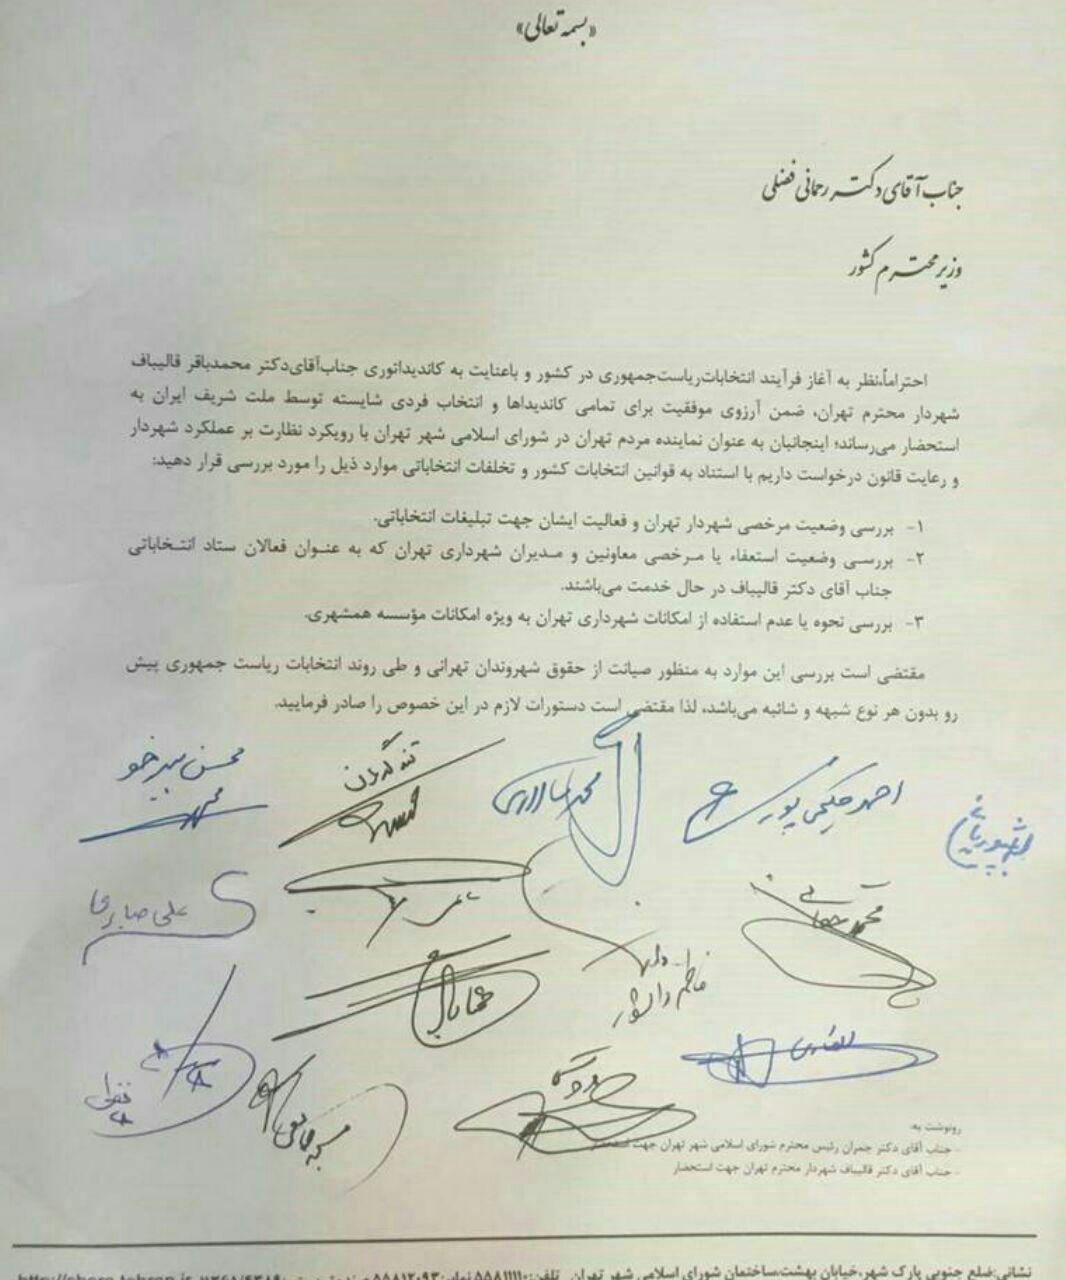 «بسمه تعالی»
جناب آقای دکتر رحمانی فضلی
وزیر محترم کشور
احتراماً،نظر به آغاز فرآیند انتخابات‌ریاست‌جمهوری در کشور و باعنایت به کاندیداتوری جناب‌آقای‌دکتر محمدباقر قالیباف
شهردار محترم تهران، ضمن آرزوی موفقیت برای تمامی کاندیداها و انتخاب فردی شایسته توسط ملت شریف ایران به
استحضار می‌رساند؛ اینجانبان به عنوان نماینده مردم تهران در شورای اسلامی شهر تهران با رویکرد نظارت بر عملکرد شهردار
و رعایت قانون درخواست داریم با استناد به قوانین انتخابات کشور و تخلفات انتخاباتی موارد ذیل را مورد بررسی قرار دهید:
۱- بررسی وضعیت مرخصی شهردار تهران و فعالیت ایشان جهت تبلیغات انتخاباتی.
۲- بررسی وضعیت استعفاء یا مرخصی معاونین و مدیران شهرداری تهران که به عنوان فعالان ستاد انتخاباتی
جناب آقای دکتر قالیباف در حال خدمت می‌باشند.
۳- بررسی نحوه یا عدم استفاده از امکانات شهرداری تهران به ویژه امکانات مؤسسه همشهری.
مقتضی است بررسی این موارد به منظور صیانت از حقوق شهروندان تهرانی و طی روند انتخابات ریاست جمهوری پیش
رو بدون هر نوع شبهه و شائبه می‌باشد، لذا مقتضی است دستورات لازم در این خصوص را صادر فرمایید.
احمد حکیمی پور
تندگویان
علی صابری
فاطمه دانشور
رونوشت به:
- جناب آقای دکتر چمران رئیس محترم شورای اسلامی شهر تهران جهت استحضار
- جناب آقای دکتر قالیباف شهردار محترم تهران جهت استحضار
نشانی:ضلع جنوبی پارک شهر،خیابان بهشت،ساختمان شورای اسلامی شهر تهران تلفن:۵۵۸۱۱۱۱۰